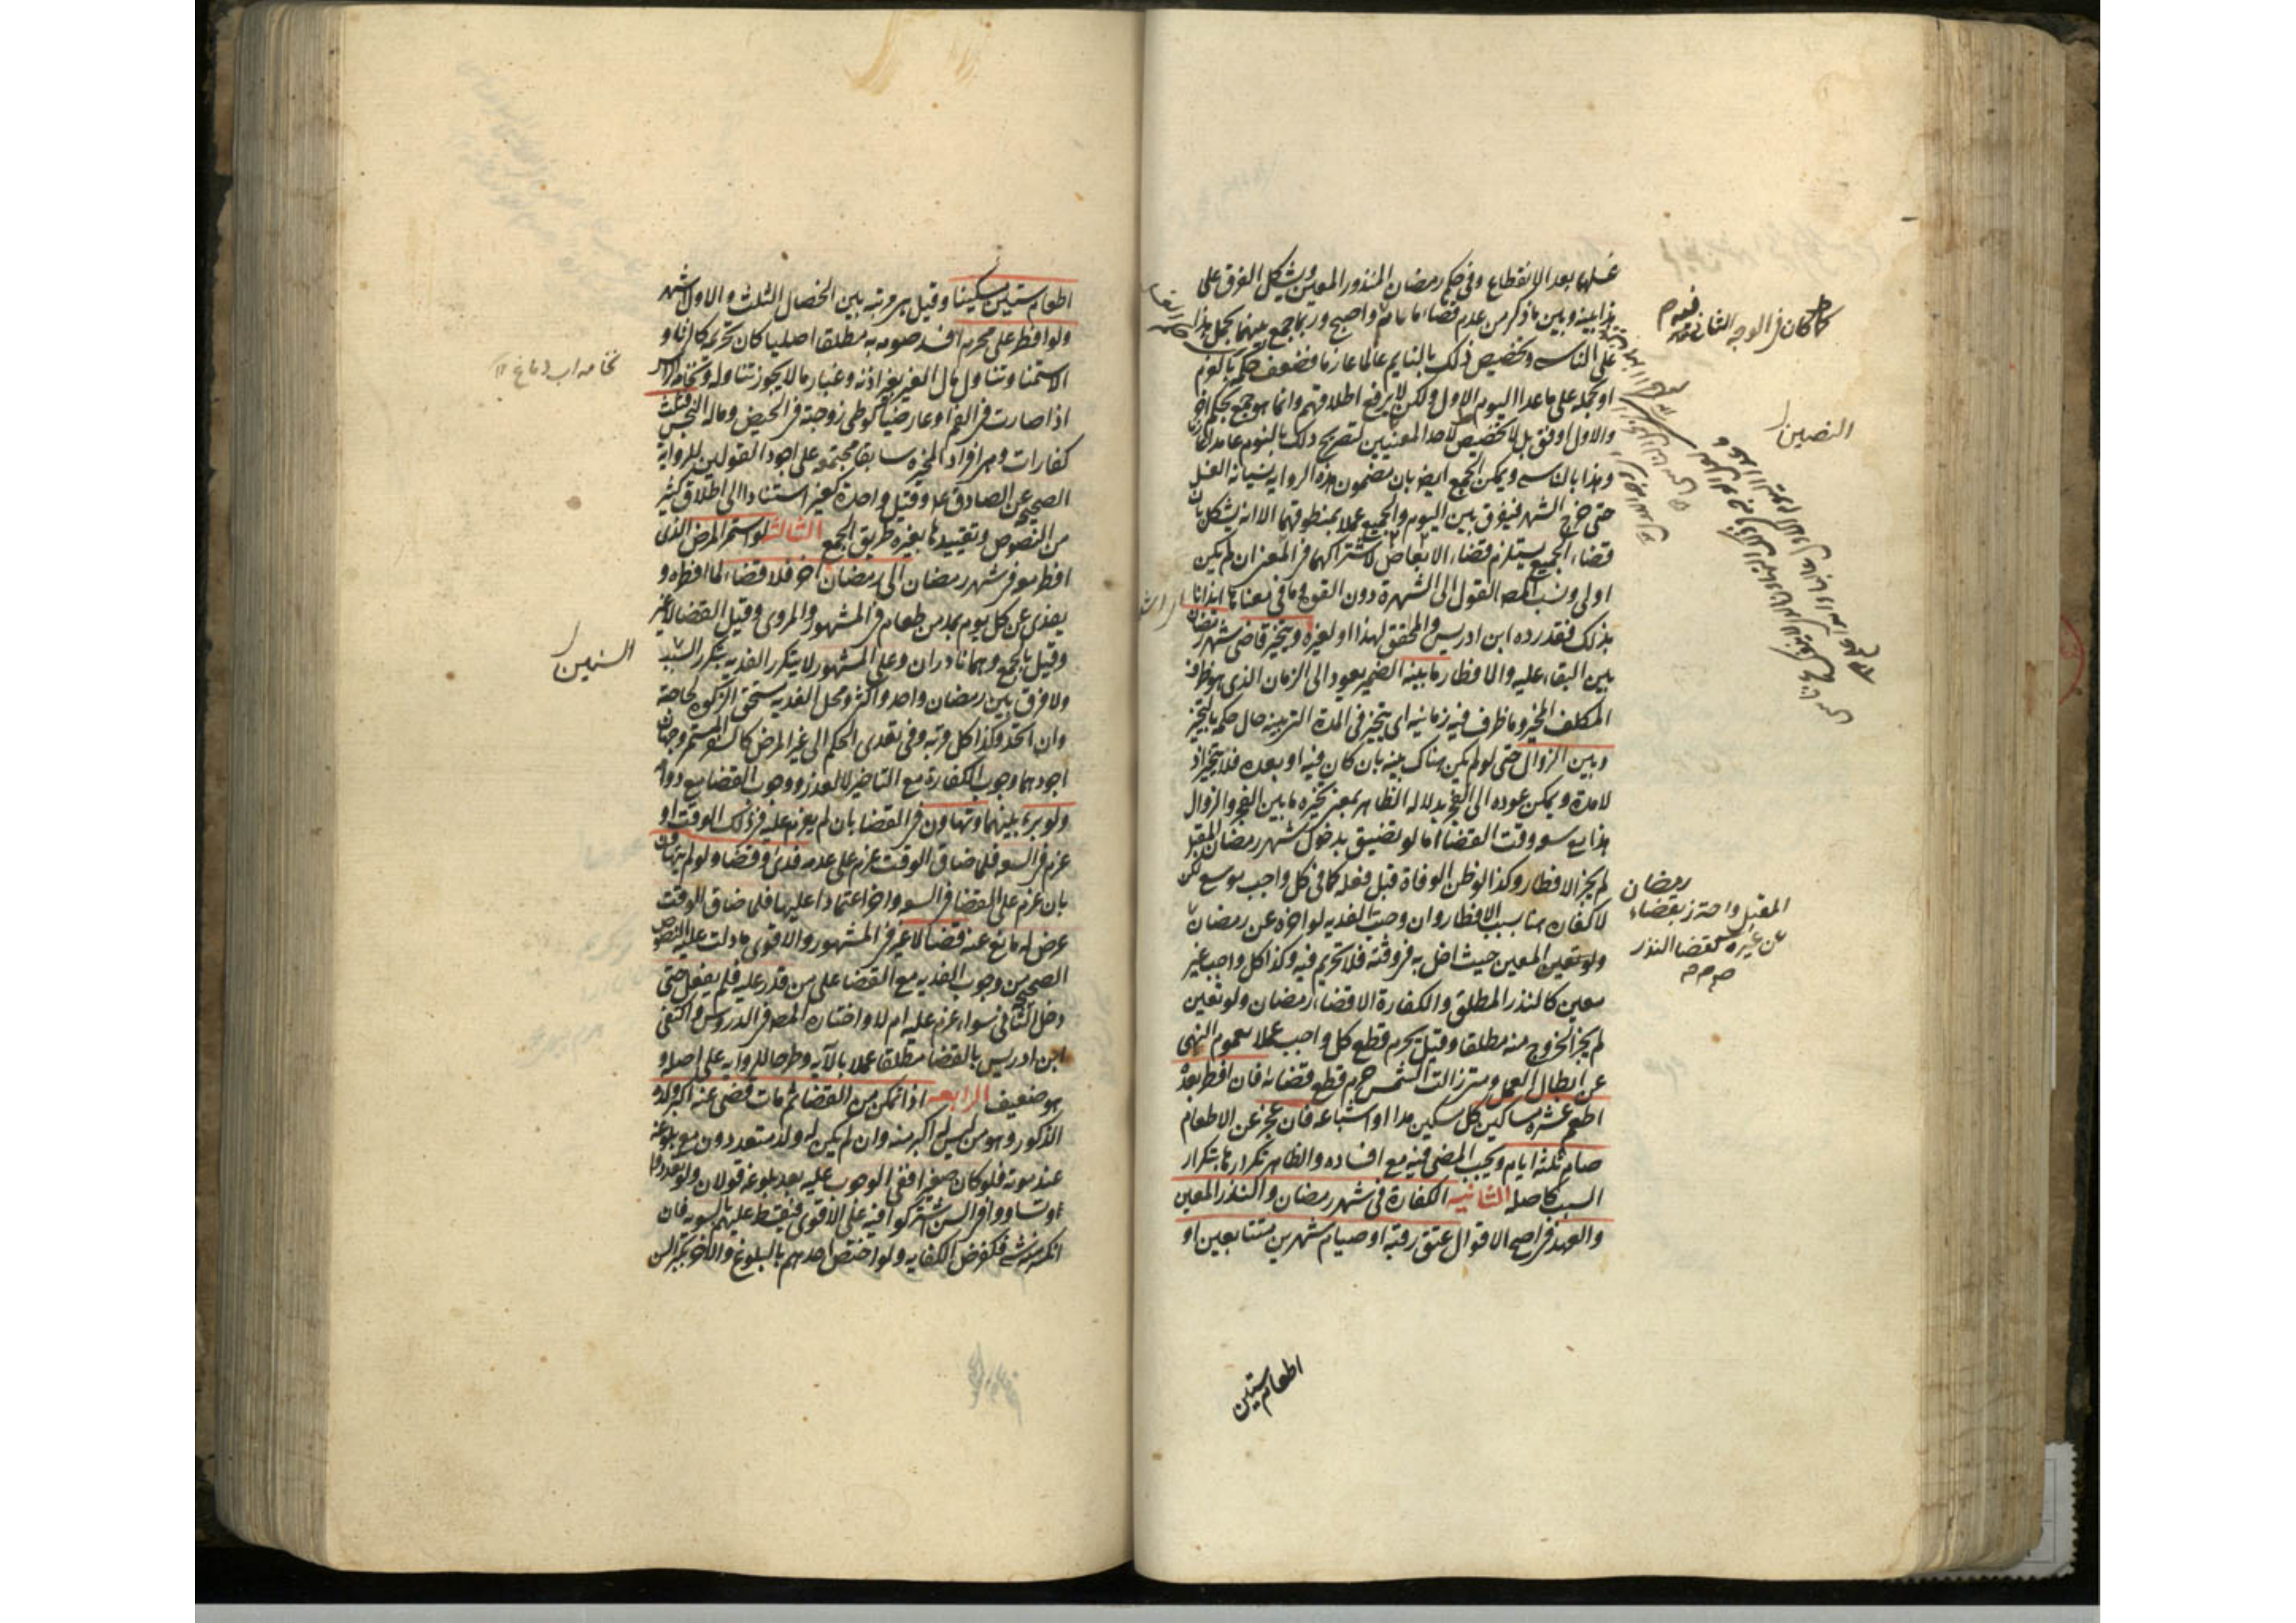 غسلها بعد الانقطاع وفى حكم رمضان المنذور المعين ويشكل الفرق على
هذا بينه وبين ما ذكر من عدم قضاء ما نام واصبح وربما جمع بينهما بحمل هذا
على الناسى وتخصيص ذلك بالنايم عالما عازما فضعف حكمه بالنوم
او بحمله على ما عدا اليوم الاول ولكن لا يرفع اطلاقهم وانما هو جمع بحكم اخر
والاول اوفق بل لا تخصيص لاحد المعنيين لتصريح ذلك بالنوم عامدا
وهذا بالناسى ويمكن الجمع ايضا بان مضمون هذه الرواية نسيانه الغسل
حتى خرج الشهر فيفرق بين اليوم والجميع عملا بمنطوقهما الا انه يشكل بان
قضاء الجميع يستلزم قضاء الابعاض لاشتراكهما فى المعنى ان لم يكن
اولى ونسب المص القول الى الشهرة دون القوة وما فى معناها ايذانا
بذلك فقد رده ابن ادريس والمحقق لهذا او لغيره ويتخير قاضى شهر رمضان
بين البقاء عليه والافطار ما بينه الضمير يعود الى الزمان الذى هو ظرف
المكلف المخير وما ظرفيه زمانيه اى يتخير فى المدة التى بينه حال حكمه بالتخيير
وبين الزوال حتى لو لم يكن هناك بينه بان كان فيه او بعده فلا تخيير اذ
لا مدة ويمكن عوده الى الفجر بدلالة الظاهر بمعنى تخيره ما بين الفجر والزوال
هذا مع سعة وقت القضا اما لو تضيق بدخول شهر رمضان المقبل
لم يجز الافطار وكذا لو ظن الوفاة قبل فعله كما فى كل واجب موسع لكن
لا كفارة هنا بسبب الافطار وان وجبت الفدية لو اخره عن رمضان
ولو تعين المعين حيث اخل به فى وقته فلا تحريم فيه وكذا كل واجب غير
معين كالنذر المطلق والكفارة الا قضاء رمضان ولو تعين
لم يجز الخروج منه مطلقا وقيل يحرم قطع كل واجب عملا بعموم النهى
عن ابطال العمل ومتى زالت الشمس حرم قطع قضائه فان افطر بعده
اطعم عشرة مساكين كل مسكين مدا او اشباعه فان عجز عن الاطعام
صام ثلثه ايام ويجب المضى فيه مع افساده والظاهر تكرارها بتكرار
السبب كاصله الثانيه الكفارة فى شهر رمضان والنذر المعين
والعهد فى اصح الاقوال عتق رقبة او صيام شهرين متتابعين او
كما كان فى الوجه الثانى
النصين
رمضان
المقبل واحترز بقضاء
عن غيره كقضا النذر
اطعام ستين
اطعام ستين مسكينا وقيل هى مرتبة بين الخصال الثلث والاول اشهر
ولو افطر على محرم افسد صومه به مطلقا اصليا كان تحريمه كالزنا و
الاستمنا وتناول مال الغير بغير اذنه وغبار ما لا يجوز تناوله ونخامة الراس
اذا صارت فى الفم او عارضيا كوطى زوجته فى الحيض وماله النجس فثلث
كفارات وهى افراد المخيرة سابقا مجتمعة على اجود القولين للرواية
الصحيحة عن الصادق ع وقيل واحدة كغيره استنادا الى اطلاق كثير
من النصوص وتقييدها بغيره طريق الجمع الثالثة لو استمر المرض الذى
افطر معه فى شهر رمضان الى رمضان اخر فلا قضاء لما افطره و
يفدى عن كل يوم بمد من طعام فى المشهور والمروى وقيل القضا لا غير
وقيل بالجمع وهما نادران وعلى المشهور لا يتكرر الفدية بتكرر السنين
ولا فرق بين رمضان واحد واكثر ومحل الفدية مستحق الزكوة لحاجته
وان اتحد وكذا كل فدية وفى تعدى الحكم الى غير المرض كالسفر المستمر وجهان
اجودهما وجوب الكفارة مع التاخير لا لعذر ووجوب القضا مع دوامه
ولو برء بينهما وتهاون فى القضا بان لم يعزم عليه فى ذلك الوقت او
عزم فى السعة فلما ضاق الوقت عزم على عدمه فدى وقضا ولو لم يتهاون
بان عزم على القضا فى السعة واخر اعتمادا عليها فلما ضاق الوقت
عرض له مانع عنه قضا لا غير فى المشهور والاقوى ما دلت عليه النصوص
الصحيحة من وجوب الفدية مع القضا على من قدر عليه فلم يفعل حتى
دخل الثانى سواء عزم عليه ام لا واختاره المص فى الدروس واكتفى
ابن ادريس بالقضا مطلقا عملا بالآية وطرحا للرواية على اصله و
هو ضعيف الرابعه اذا تمكن من القضا ثم مات قضى عنه اكبر ولده
الذكور وهو من ليس له اكبر منه وان لم يكن له ولد متعددون مع بلوغه
عند موته فلو كان صغيرا ففى الوجوب عليه بعد بلوغه قولان ولو تعددوا
وتساووا فى السن اشتركوا فيه على الاقوى فيقسط عليهم بالسوية فان
انكسر منه شى فكفرض الكفاية ولو اختص احدهم بالبلوغ والاخر بكبر السن
نخامه اب دماغ
السنين